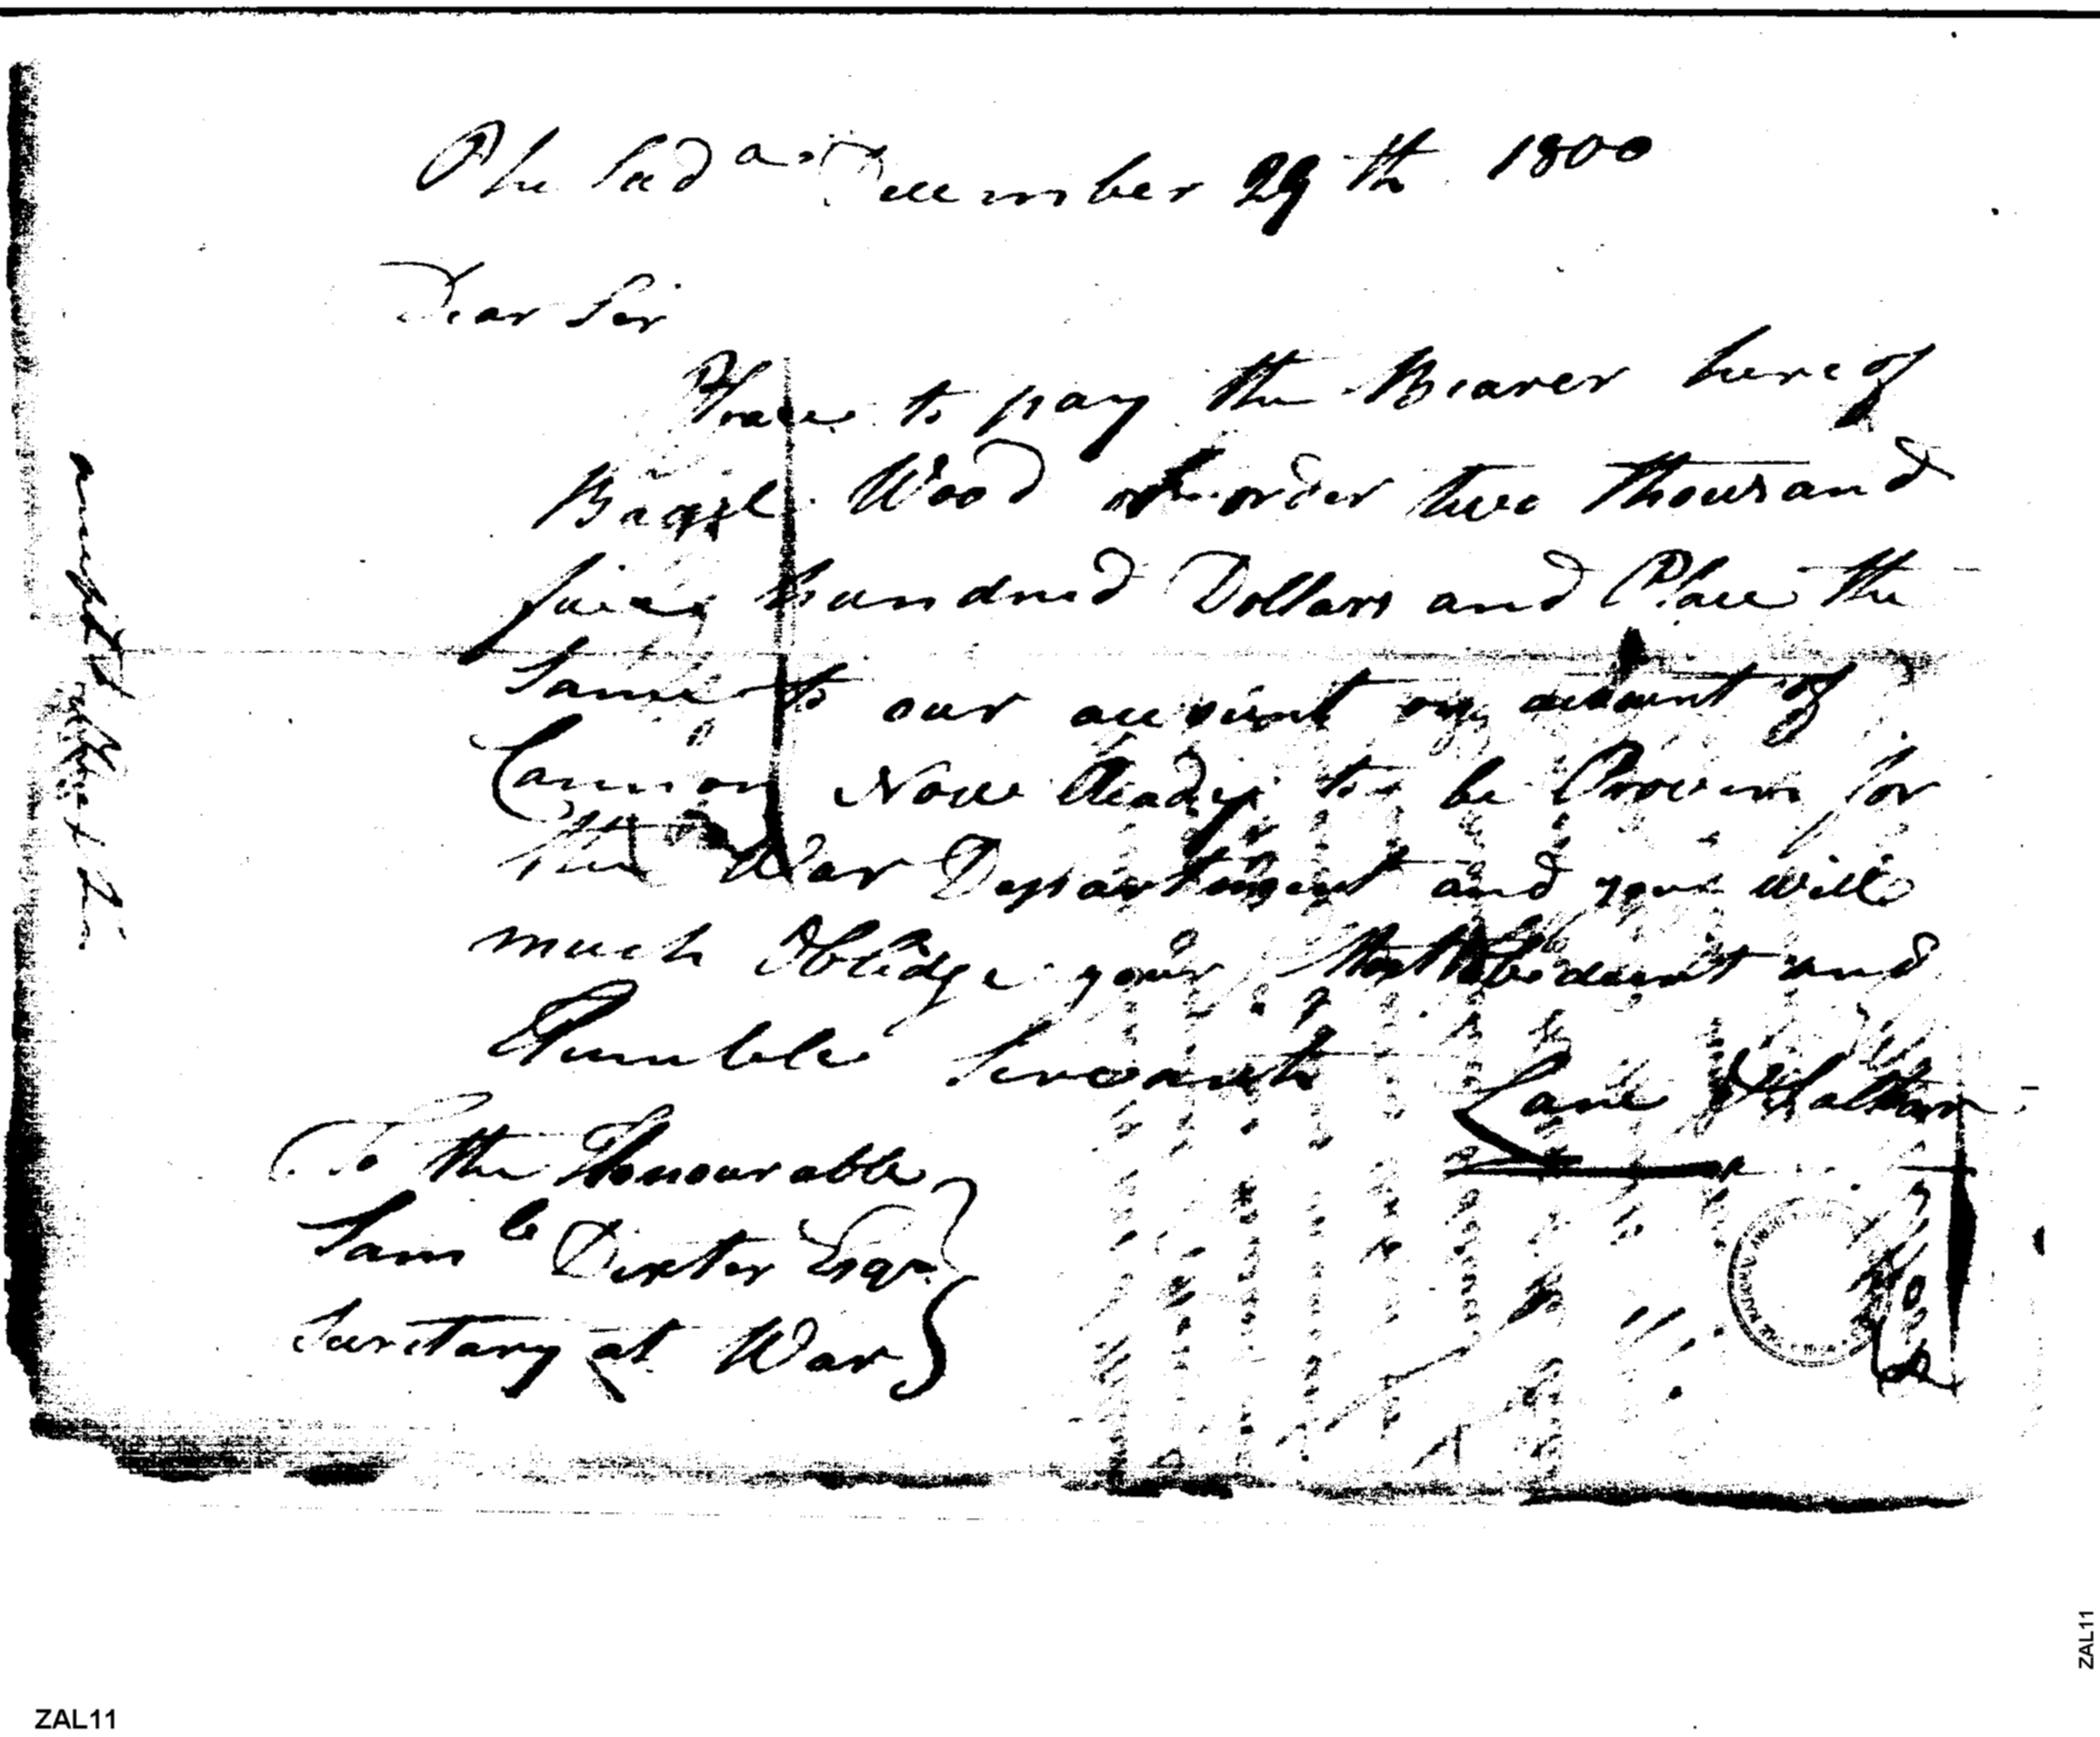 Philad a December 29th 1800
Dear Sir
Please to pay the Bearer hereof
Bazzel Wood or order two thousand
five hundred Dollars and Place the
Same to our account on account of
Cannon Now Ready to be Proven for
the War Department and you will
much Oblidge your Most Obedient and
Humble Servants
Lane & Salter
To the Honourable
Sam l Dexter Esqr
Secretary at War
ZAL11
ZAL11